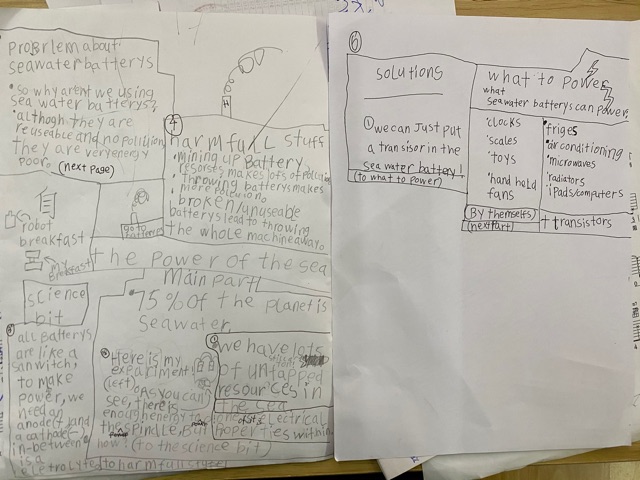 probrlem about
seawater batterys
• so why arent we using
sea water batterys?
• althogh they are
reuseable and no pollution
they are very energy
poor. (next page)
4
harmfull stuff
• mining up battery
resorses makes lots of pollution
• throwing batterys makes
more polution
broken/unuseable
batterys lead to throwing
the whole machine away.
go to
batterys
robot
breakfast
my
breakfast
the power of the sea
science
bit
all Batterys
are like a
sanwitch,
to make
power, we
need an
anode(+) and
a cathode(-)
in-between
is a
electrolyte
Main part!
• 75% of the planet is
seawater
Here is my
experiment!
(left) As you can
see, there is
enough enemy to
the spindle, But
how? (to the science bit)
to harmfull stuff
1
we have lots
of untapped
resources in
the sea
electrical
properties within
6
solutions
we can Just put
a transisor in the
sea water battery!
(to what to power)
what to power
what
seawater batterys can power
• clocks
• scales
toys
• hand held
fans
(By themselfs)
(next part)
• friges
• air conditioning
• microwaves
• radiators
• ipads/computers
+ transistors